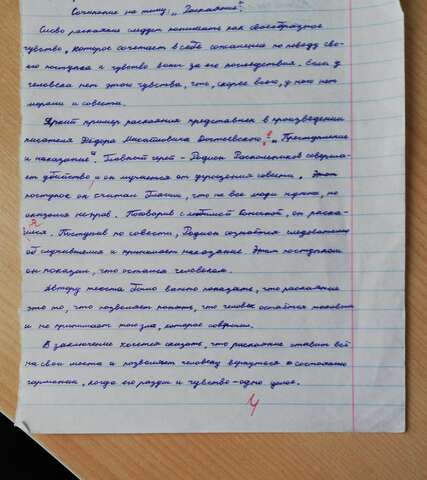 Сочинение на тему: "Раскаяние".
Слово раскаяние следует понимать как своеобразное
чувство, которое сочетает в себе сожаление по поводу сво-
его поступка и чувство вины за его последствия. Если у
человека нет этого чувства, то, скорее всего, у него нет
морали и совести.
Яркий пример раскаяния представлен в произведении
писателя Фёдора Михайловича Достоевского: "Преступление
и наказание". Главный герой - Родион Раскольников соверша-
ет убийство и он мучается от угрызения совести. Этот
поступок он считал благим, что не все люди нужны, но
оказался неправ. Поговорив с любимой Соней, он раска-
ялся. Поступив по совести, Родион сознаётся следователю
об случившемся и принимает наказание. Этим поступком
он показал, что остался человеком.
Автору текста было важно показать, что раскаяние
это то, что позволяет понять, что человек остаётся человеком
и не принимает того зла, которое совершил.
В заключение хочется сказать, что раскаяние ставит всё
на свои места и позволяет человеку вернуться в состояние
гармонии, когда его разум и чувство - одно целое.
4